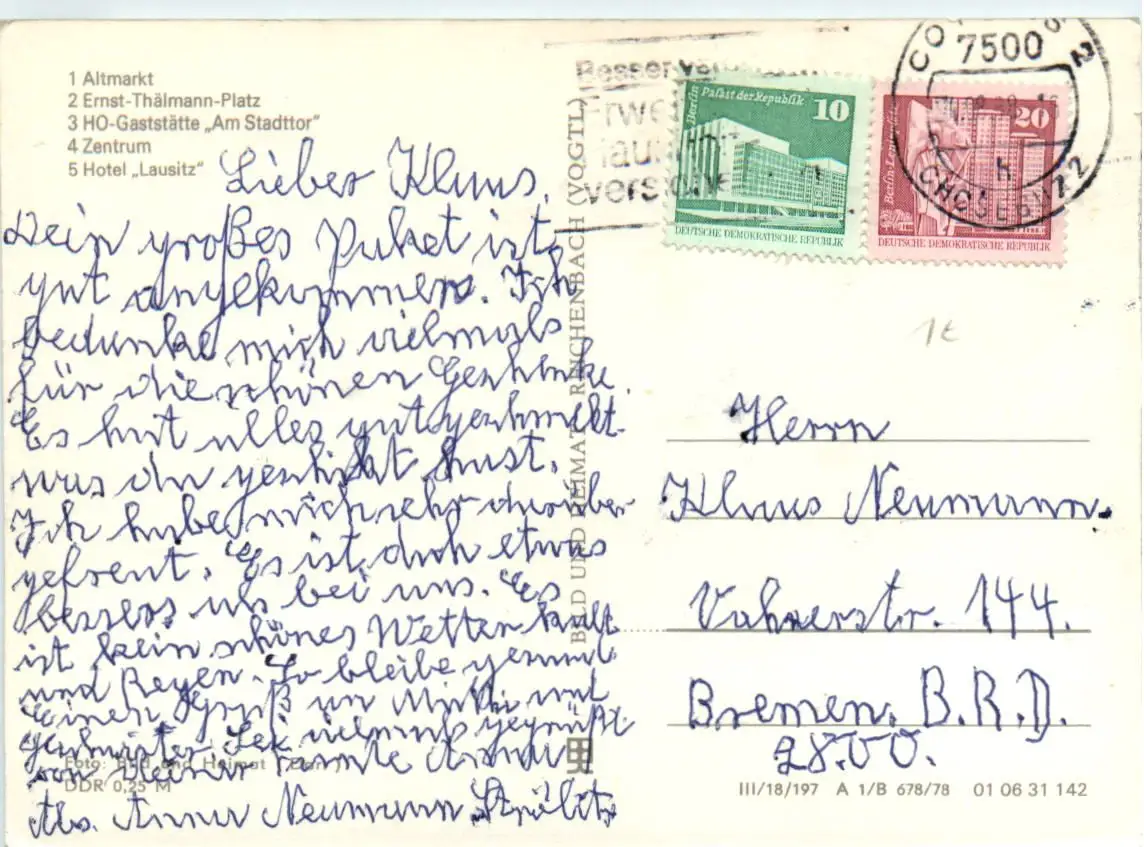 1 Altmarkt
2 Ernst-Thälmann-Platz
3 HO-Gaststätte „Am Stadttor“
4 Zentrum
5 Hotel „Lausitz“
Lieber Klaus,
Dein großes Paket ist
gut angekommen. Ich
bedanke mich vielmals
für die schönen Geschenke.
Es hat alles gut geschmekt.
was du geschikt hast.
Ich habe mich sehr darüber
gefreut. Es ist doch etwas
besseres als bei uns. Es
ist kein schönes Wetter kalt
und Regen. So bleibe gesund
einen Gruß an Mutti und
Geschwister. Sei vielmals gegrüßt
von deiner Tante Anna
Abs. Anna Neumann Ströbitz
Foto: Bild und Heimat
DDR 0,25 M
BILD UND HEIMAT REICHENBACH (VOGTL)
Besser
versiche
Berlin Palast der Republik
10
DEUTSCHE DEMOKRATISCHE REPUBLIK
Berlin-Leninplatz
20
DEUTSCHE DEMOKRATISCHE REPUBLIK
7500
2
h
CHOŚEBUZ 2
1€
Herrn
Klaus Neumann.
Vahrerstr. 144.
Bremen. B.R.D.
2800.
III/18/197 A 1/B 678/78 01 06 31 142